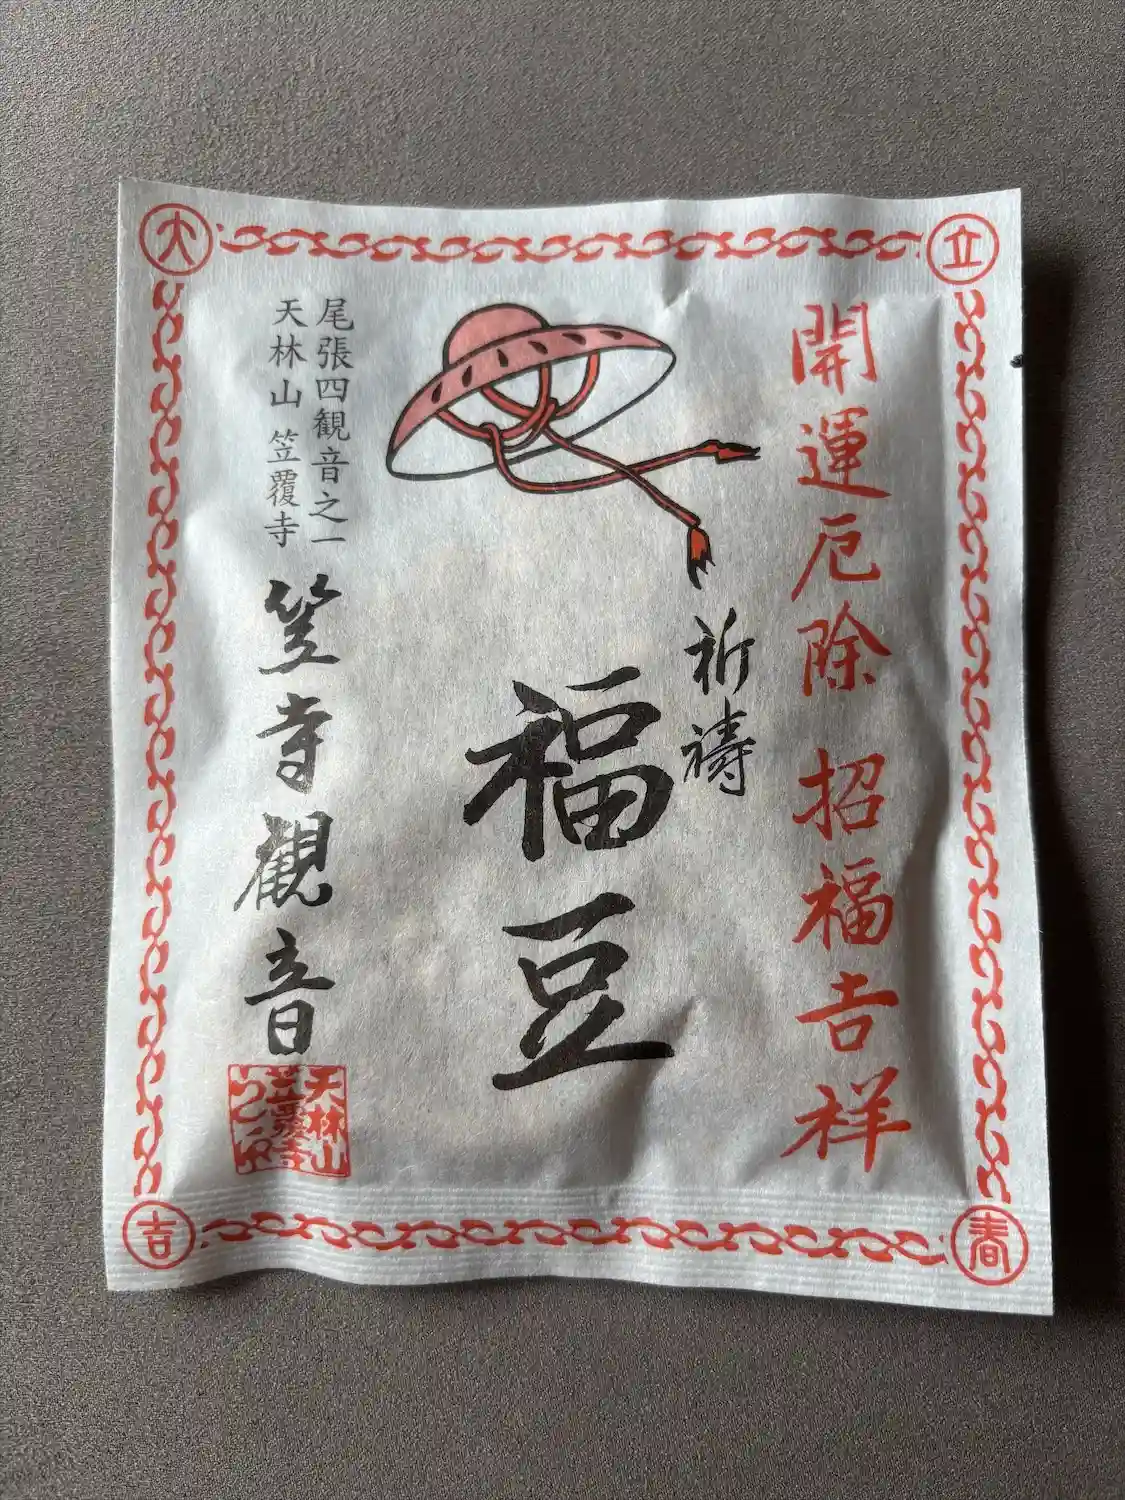 立
春
大
吉
開運厄除 招福吉祥
祈祷
福豆
尾張四観音之一
天林山 笠覆寺
笠寺観音
天林山
笠覆寺